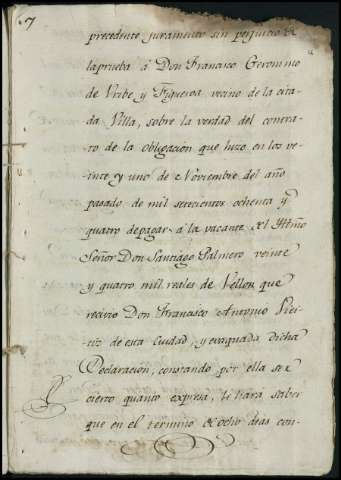 precedente juramento sin perjuicio de
la prueba á Don Francisco Geronimo
de Uribe y Figueroa vecino de la cita-
da Villa, sobre la verdad del contra-
to de la obligación que hizo en los ve-
inte y uno de Noviembre del año
pasado de mil setecientos ochenta y
quatro de pagar á la vacante del Iltmo
Señor Don Santiago Palmero veinte
y quatro mil reales de Vellon que
recivio Don Francisco Antonio
de esta Ciudad, y evaquada dicha
Declaracion, constando por ella ser
cierto quanto expresa, le hara saber
que en el termino de ocho dias con-